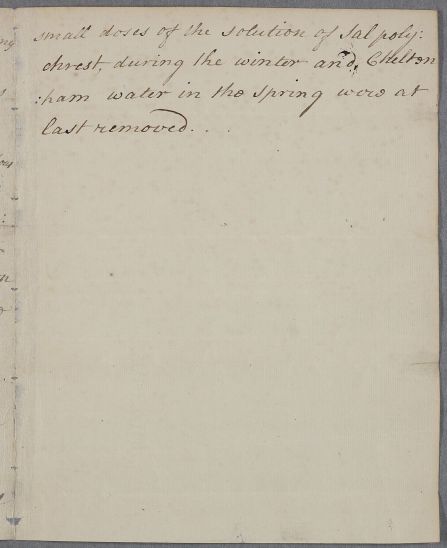 small doses of the solution of Sal poly:
chrest, during the winter and, Chelten
:ham water in the spring were at
last removed. . .